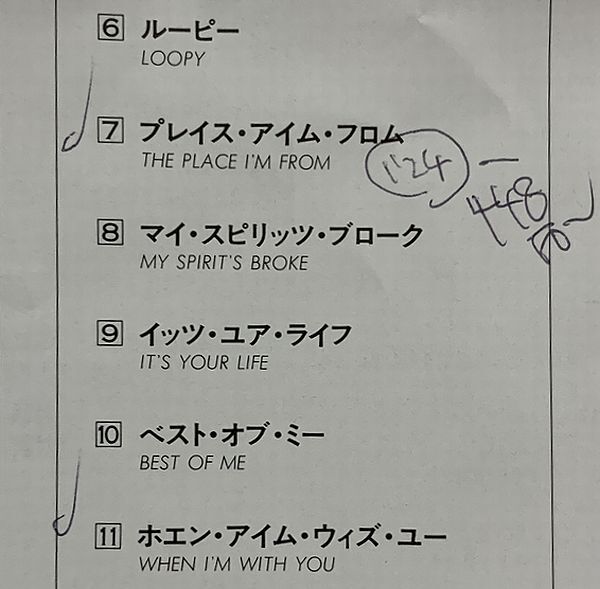 6 ルーピー
LOOPY
7 プレイス・アイム・フロム
THE PLACE I'M FROM
1'24
8 マイ・スピリッツ・ブローク
MY SPIRIT'S BROKE
9 イッツ・ユア・ライフ
IT'S YOUR LIFE
10 ベスト・オブ・ミー
BEST OF ME
11 ホエン・アイム・ウィズ・ユー
WHEN I'M WITH YOU